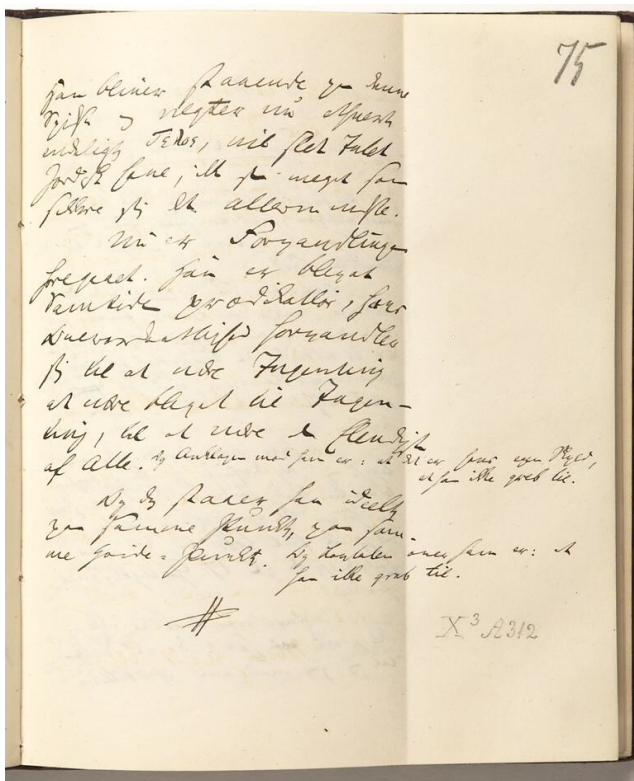 75
Han bliver staaende paa denne
Spidse og negter nu ethvert
endeligt Τελος, vil slet Intet
jordisk have, ikke saa meget som
sikkre sig det allermindste.
Nu er Forvandlingen
foregaaet. Han er bleven
Samtiden prædikatløs, hans
forvandler
sig til at være Ingenting
at være bleven til Ingen-
ting, til at være den Elendigste
af Alle. Og Anklagen mod ham er: at det er hans egen Skyld,
at han ikke greb til.
Og dog staaer han ideelt
paa samme Punkt, paa sam-
me Høide-Punkt. Og Dommen over ham er: at
han ikke greb til.
X³ A312